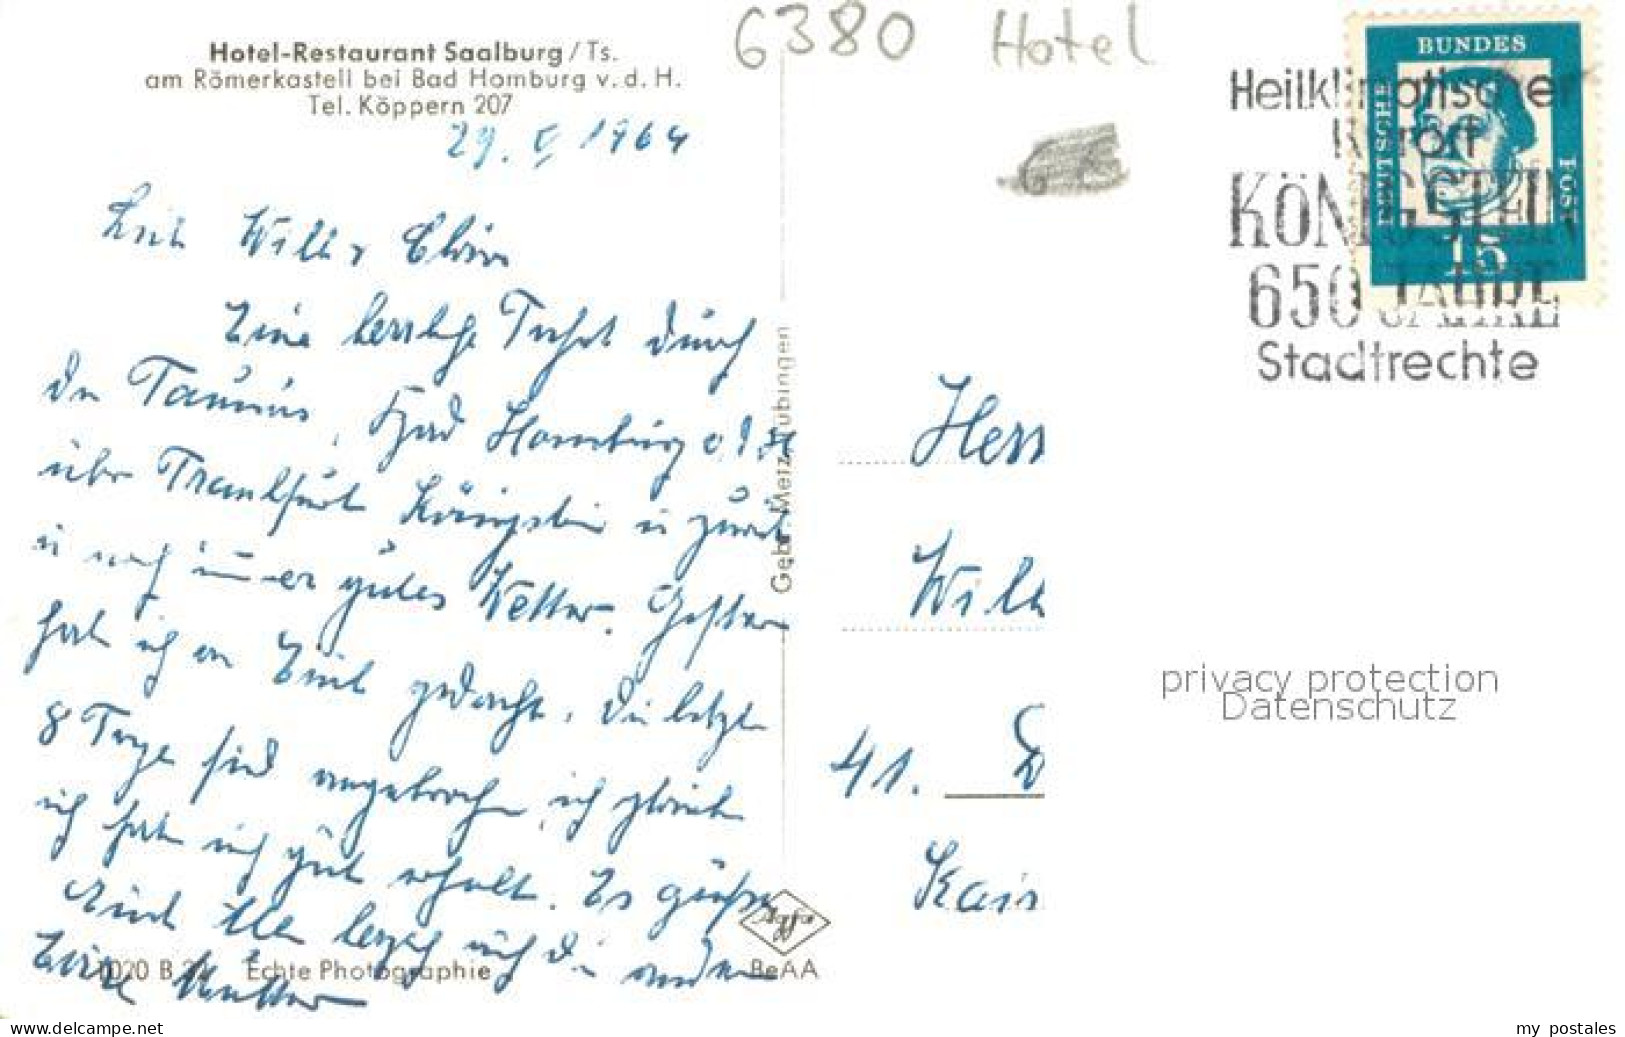 6380 Hotel
Hotel-Restaurant Saalburg / Ts.
am Römerkastell bei Bad Homburg v. d. H.
Tel. Köppern 207
1964
Eine herrliche Fahrt durch
den Taunus, Bad Homburg v. d. H
über Frankfurt Königstein u zurück
u noch immer gutes Wetter. Gestern
hab ich an Euch gedacht. Die letzten
8 Tage sind angebrochen, ich glaube
ich hab mich gut erholt. Es grüßt
Euch alle herzlich auch die anderen
Eure Mutter
1020 B Echte Photographie
Gebr. Metz, Tübingen
Agfa
BeAA
BUNDES
DEUTSCHE
POST
15
Heilklimatischer
Kurort
KÖNIGSTEIN
650 JAHRE
Stadtrechte
Herr
Will
41. D
Kais
privacy protection
Datenschutz
www.delcampe.net
my_postales